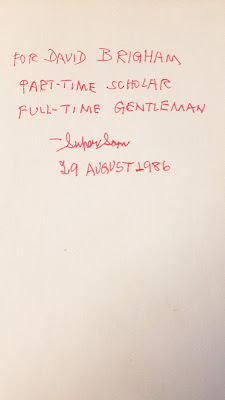 FOR DAVID BRIGHAM
PART-TIME SCHOLAR
FULL-TIME GENTLEMAN
—SuperSam
29 AUGUST 1986